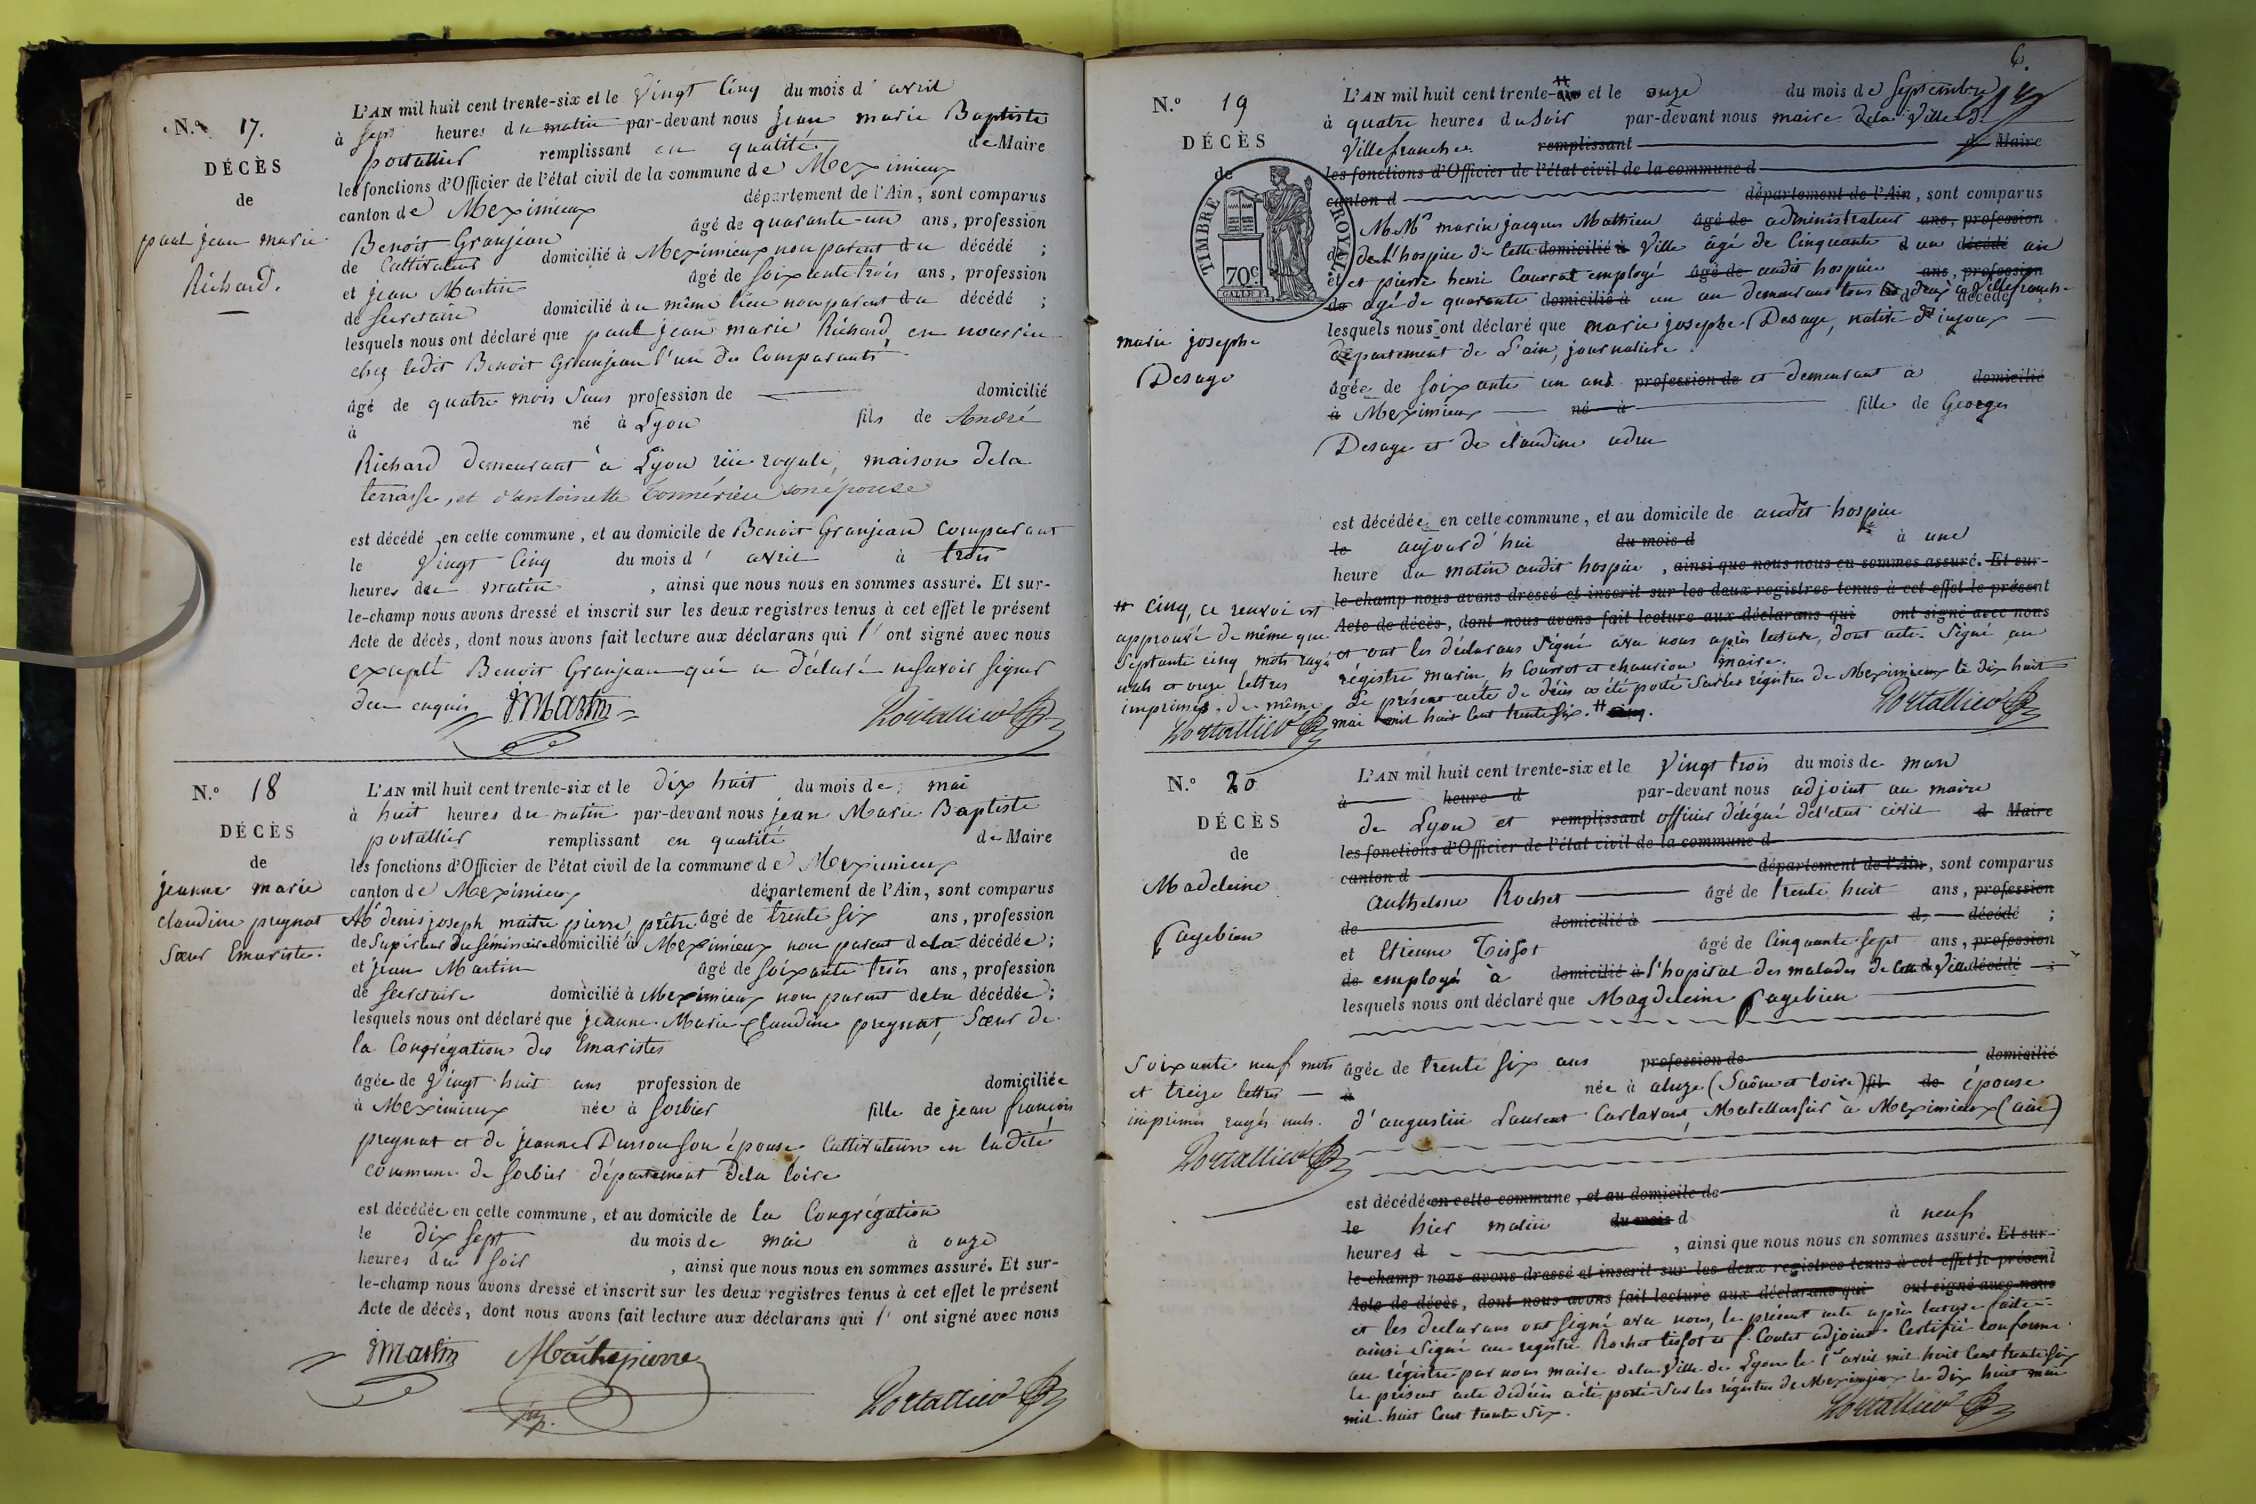 N.o 17.
DÉCÈS
de
paul jean marie
Richard.
L'AN mil huit cent trente-six et le vingt cinq du mois d'avril
à sept heures du matin par-devant nous jean marie Baptiste
portallier remplissant en qualité de Maire
les fonctions d'Officier de l'état civil de la commune de Meximieux
canton de Meximieux département de l'Ain, sont comparus
Benoit Granjean âgé de quarante-un ans, profession
de Cultivateur domicilié à Meximieux non parent du décédé ;
et jean Martin âgé de soixante trois ans, profession
de secretaire domicilié au même lieu non parent du décédé ;
lesquels nous ont déclaré que paul jean marie Richard, en nourrice
chez ledit Benoit Granjean l'un des Comparants
âgé de quatre mois sans profession de domicilié
à né à Lyon fils de André
Richard demeurant à Lyon rüe royale, maison dela
terrasse, et d'antoinette son épouse
est décédé en cette commune, et au domicile de Benoit Granjean Comparant
le vingt cinq du mois d'avril à trois
heures du matin, ainsi que nous nous en sommes assuré. Et sur-
le-champ nous avons dressé et inscrit sur les deux registres tenus à cet effet le présent
Acte de décès, dont nous avons fait lecture aux déclarans qui l'ont signé avec nous
excepté Benoit Granjean qui a déclaré ne savoir signer
de ce enquis JMartin Portallier
N.o 18
DÉCÈS
de
jeanne marie
claudine preynat
Sœur Emariste.
L'AN mil huit cent trente-six et le dix huit du mois de mai
à huit heures du matin par-devant nous jean Marie Baptiste
portallier remplissant en qualité de Maire
les fonctions d'Officier de l'état civil de la commune de Meximieux
canton de Meximieux département de l'Ain, sont comparus
Mr denis joseph maitre pierre prêtre âgé de trente six ans, profession
de Supérieur du séminaire domicilié à Meximieux non parent de la décédée ;
et jean Martin âgé de soixante trois ans, profession
de secretaire domicilié à Meximieux non parent dela décédée ;
lesquels nous ont déclaré que jeanne Marie Claudine preynat, Sœur de
la Congrégation des Emaristes
âgée de vingt huit ans profession de domiciliée
à Meximieux née à sorbier fille de jean françois
preynat et de jeanne Durson son épouse, Cultivateurs en ladite
commune de sorbier département dela loire
est décédée en cette commune, et au domicile de la Congrégation
le dix sept du mois de mai à onze
heures du soir, ainsi que nous nous en sommes assuré. Et sur-
le-champ nous avons dressé et inscrit sur les deux registres tenus à cet effet le présent
Acte de décès, dont nous avons fait lecture aux déclarans qui l'ont signé avec nous
JMartin Maitrepierre
Portallier
6.
N.o 19
DÉCÈS
de
TIMBRE ROYAL.
70c
marie josephe
Desage
# cinq, ce renvoi est
approuvé de même que
septante cinq mots rayés
nuls et onze lettres
imprimés de même
Portallier
L'AN mil huit cent trente-six # et le onze du mois de septembre
à quatre heures du soir par-devant nous maire dela ville de
Villefranche remplissant d Maire
les fonctions d'Officier de l'état civil de la commune d
canton d département de l'Ain, sont comparus
M Mrs marin jacques Mathieu âgé de administrateur ans, profession
de del'hospice de cette domicilié à ville âgé de Cinquante d un décédé an
et et pierre henri Courrat employé âgé de audit hospice ans, profession
de agé de quarante domicilié à un an demeurans tous les deux à Villefranche décédé
lesquels nous ont déclaré que marie josephe Desage, native d'injoux
département de L'ain, journalière
âgée de soixante un ans profession de et demeurant à domicilié
à Meximieux né à fille de Georges
Desage et de claudine adru
est décédée en cette commune, et au domicile de audit hospice
le aujourd'hui du mois d à une
heure du matin audit hospice, ainsi que nous nous en sommes assuré. Et sur-
le-champ nous avons dressé et inscrit sur les deux registres tenus à cet effet le présent
Acte de décès, dont nous avons fait lecture aux déclarans qui ont signé avec nous
et ont les déclarans signé avec nous après lecture, dont acte. Signé au
régistre marin, h Courrat et chaurion maire.
Le présent acte de décès a été porté sur les régistres de Meximieux le dix huit
mai mil huit cent trente six. # cinq. Portallier
N.o 20
DÉCÈS
de
Madeleine
pagebien
soixante neuf mots
et treize lettres
imprimés rayés nuls.
Portallier
L'AN mil huit cent trente-six et le vingt trois du mois de mars
à heure d par-devant nous adjoint au maire
de Lyon et remplissant officier délégué del'état civil d Maire
les fonctions d'Officier de l'état civil de la commune d
canton d département de l'Ain, sont comparus
anthelme Rochet âgé de trente huit ans, profession
de domicilié à d décédé ;
et Etienne Tissot âgé de cinquante sept ans, profession
de employés à domicilié à l'hopital des malades de cette d ville décédé ;
lesquels nous ont déclaré que Magdeleine pagebien
âgée de trente six ans profession de domicilié
à née à aluze (Saône et Loire) fil de épouse
d'augustin Laurent Carlavant, Matellassier à Meximieux (ain)
est décédée en cette commune, et au domicile de
le hier matin du mois d à neuf
heures d, ainsi que nous nous en sommes assuré. Et sur-
le-champ nous avons dressé et inscrit sur les deux registres tenus à cet effet le présent
Acte de décès, dont nous avons fait lecture aux déclarans qui ont signé avec nous
et les déclarans ont signé avec nous, le présent acte après lecture faite
ainsi signé au registre Rochet tissot et f. Coutet adjoint. Certifié conforme
au régistre par nous maire dela ville de Lyon le 1er avril mil huit cent trente six
le présent acte dédécès a été porté sur les régistres de Meximieux le dix huit mai
mil huit cent trente six. Portallier